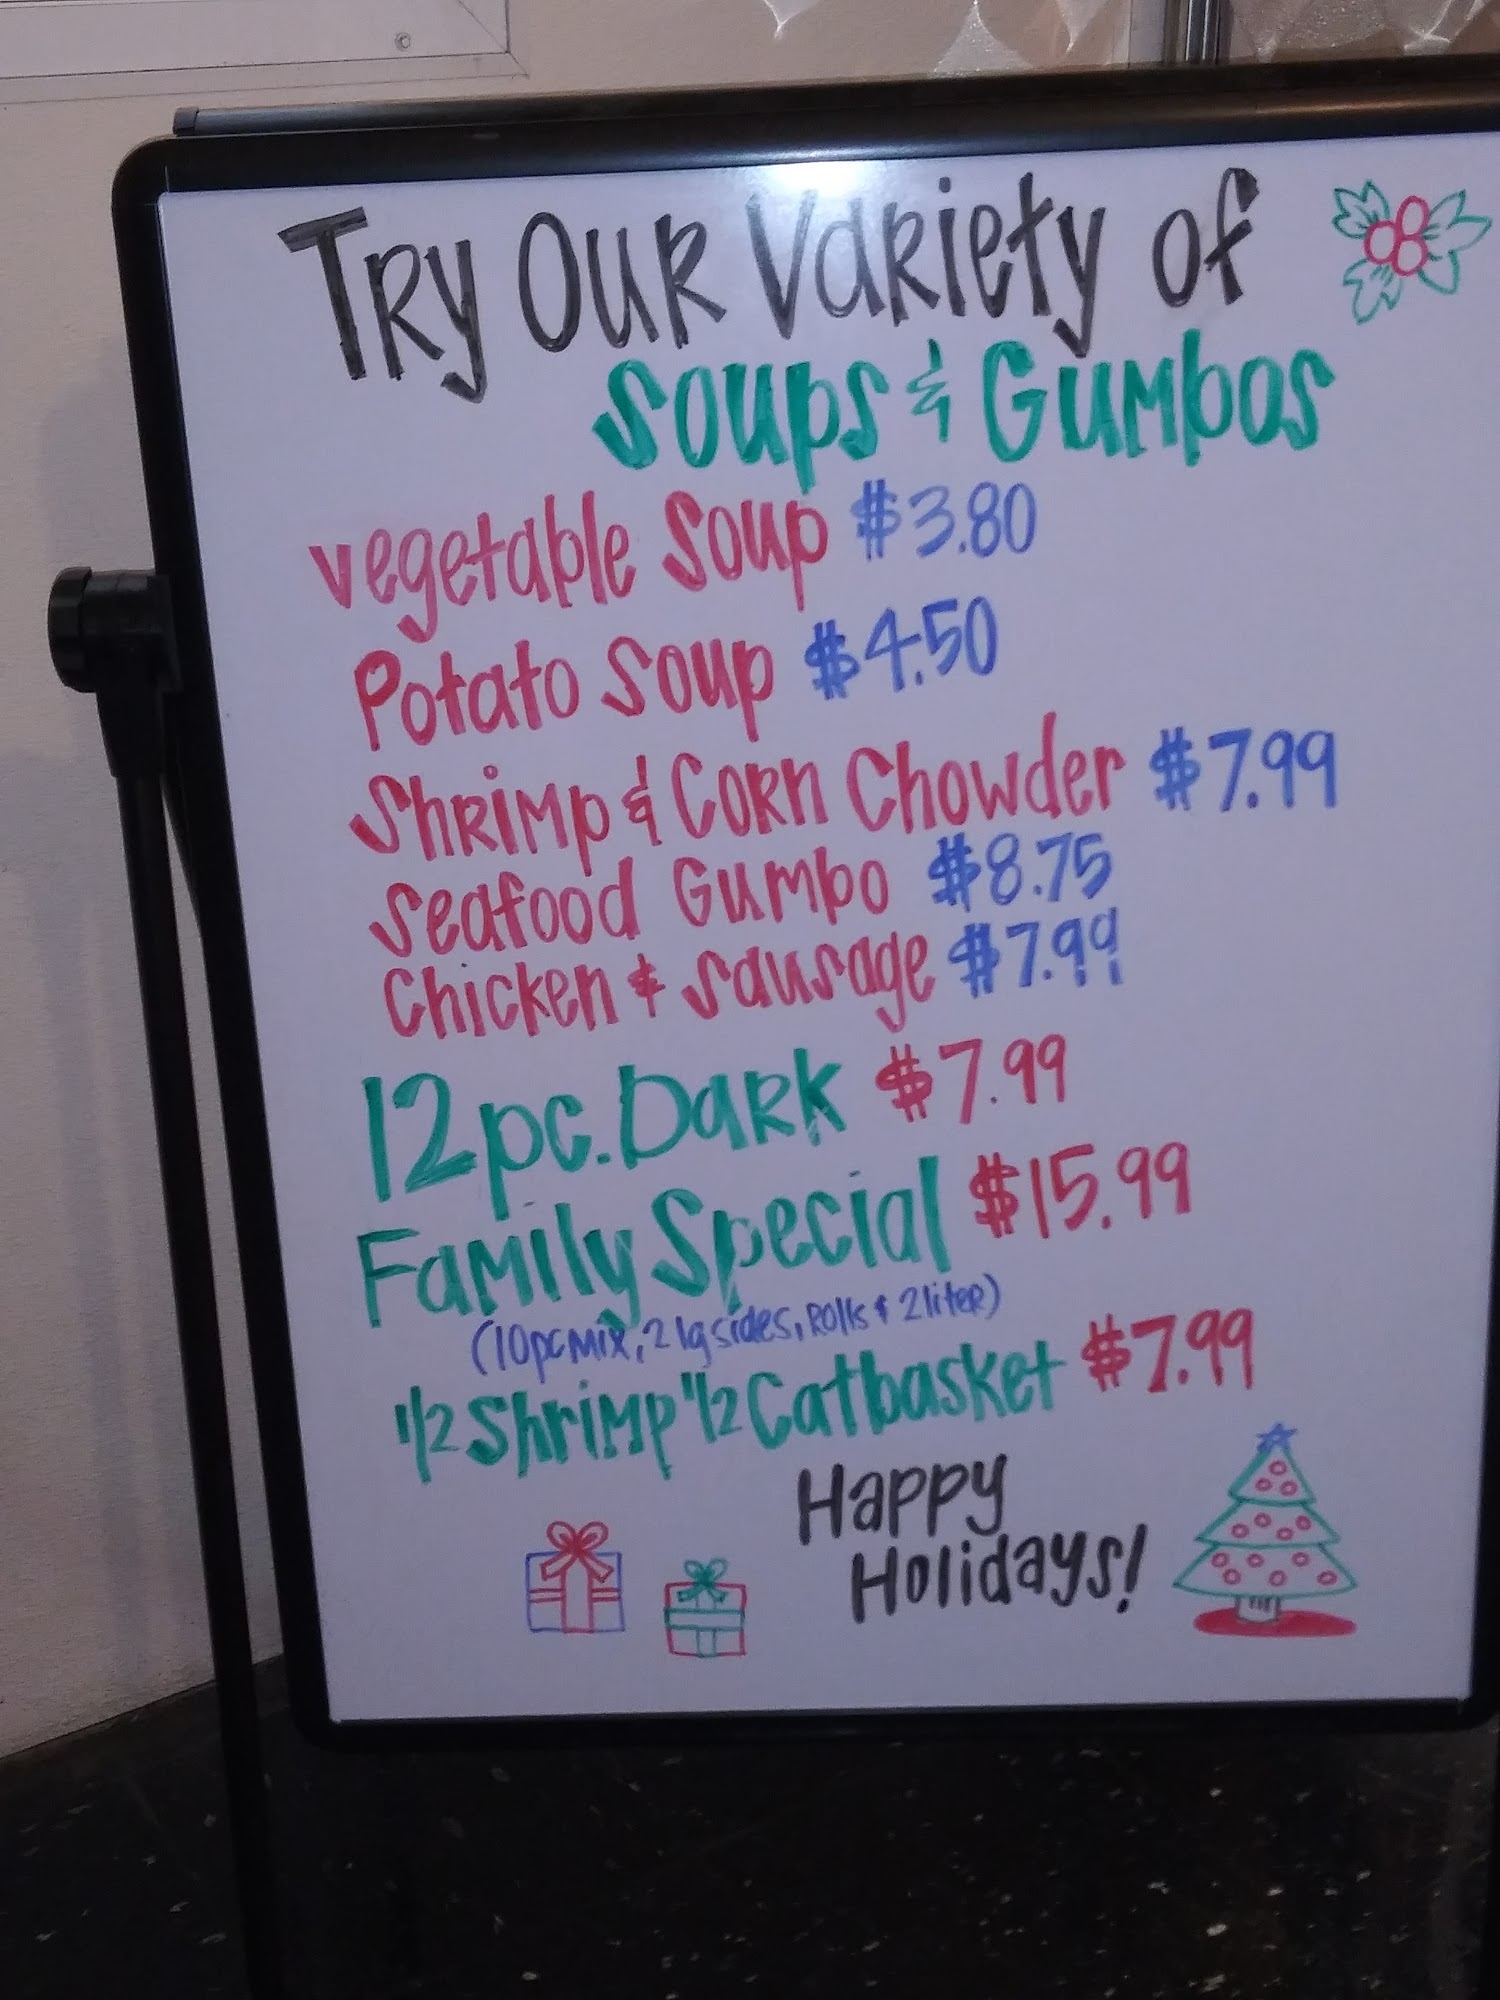 Try Our Variety of
Soups & Gumbos
Vegetable Soup $3.80
Potato Soup $4.50
Shrimp & Corn Chowder $7.99
Seafood Gumbo $8.75
Chicken & Sausage $7.99
12pc. Dark $7.99
Family Special $15.99
(10pc Mix, 2 lg sides, Rolls & 2 liter)
1/2 Shrimp 1/2 Catbasket $7.99
Happy
Holidays!